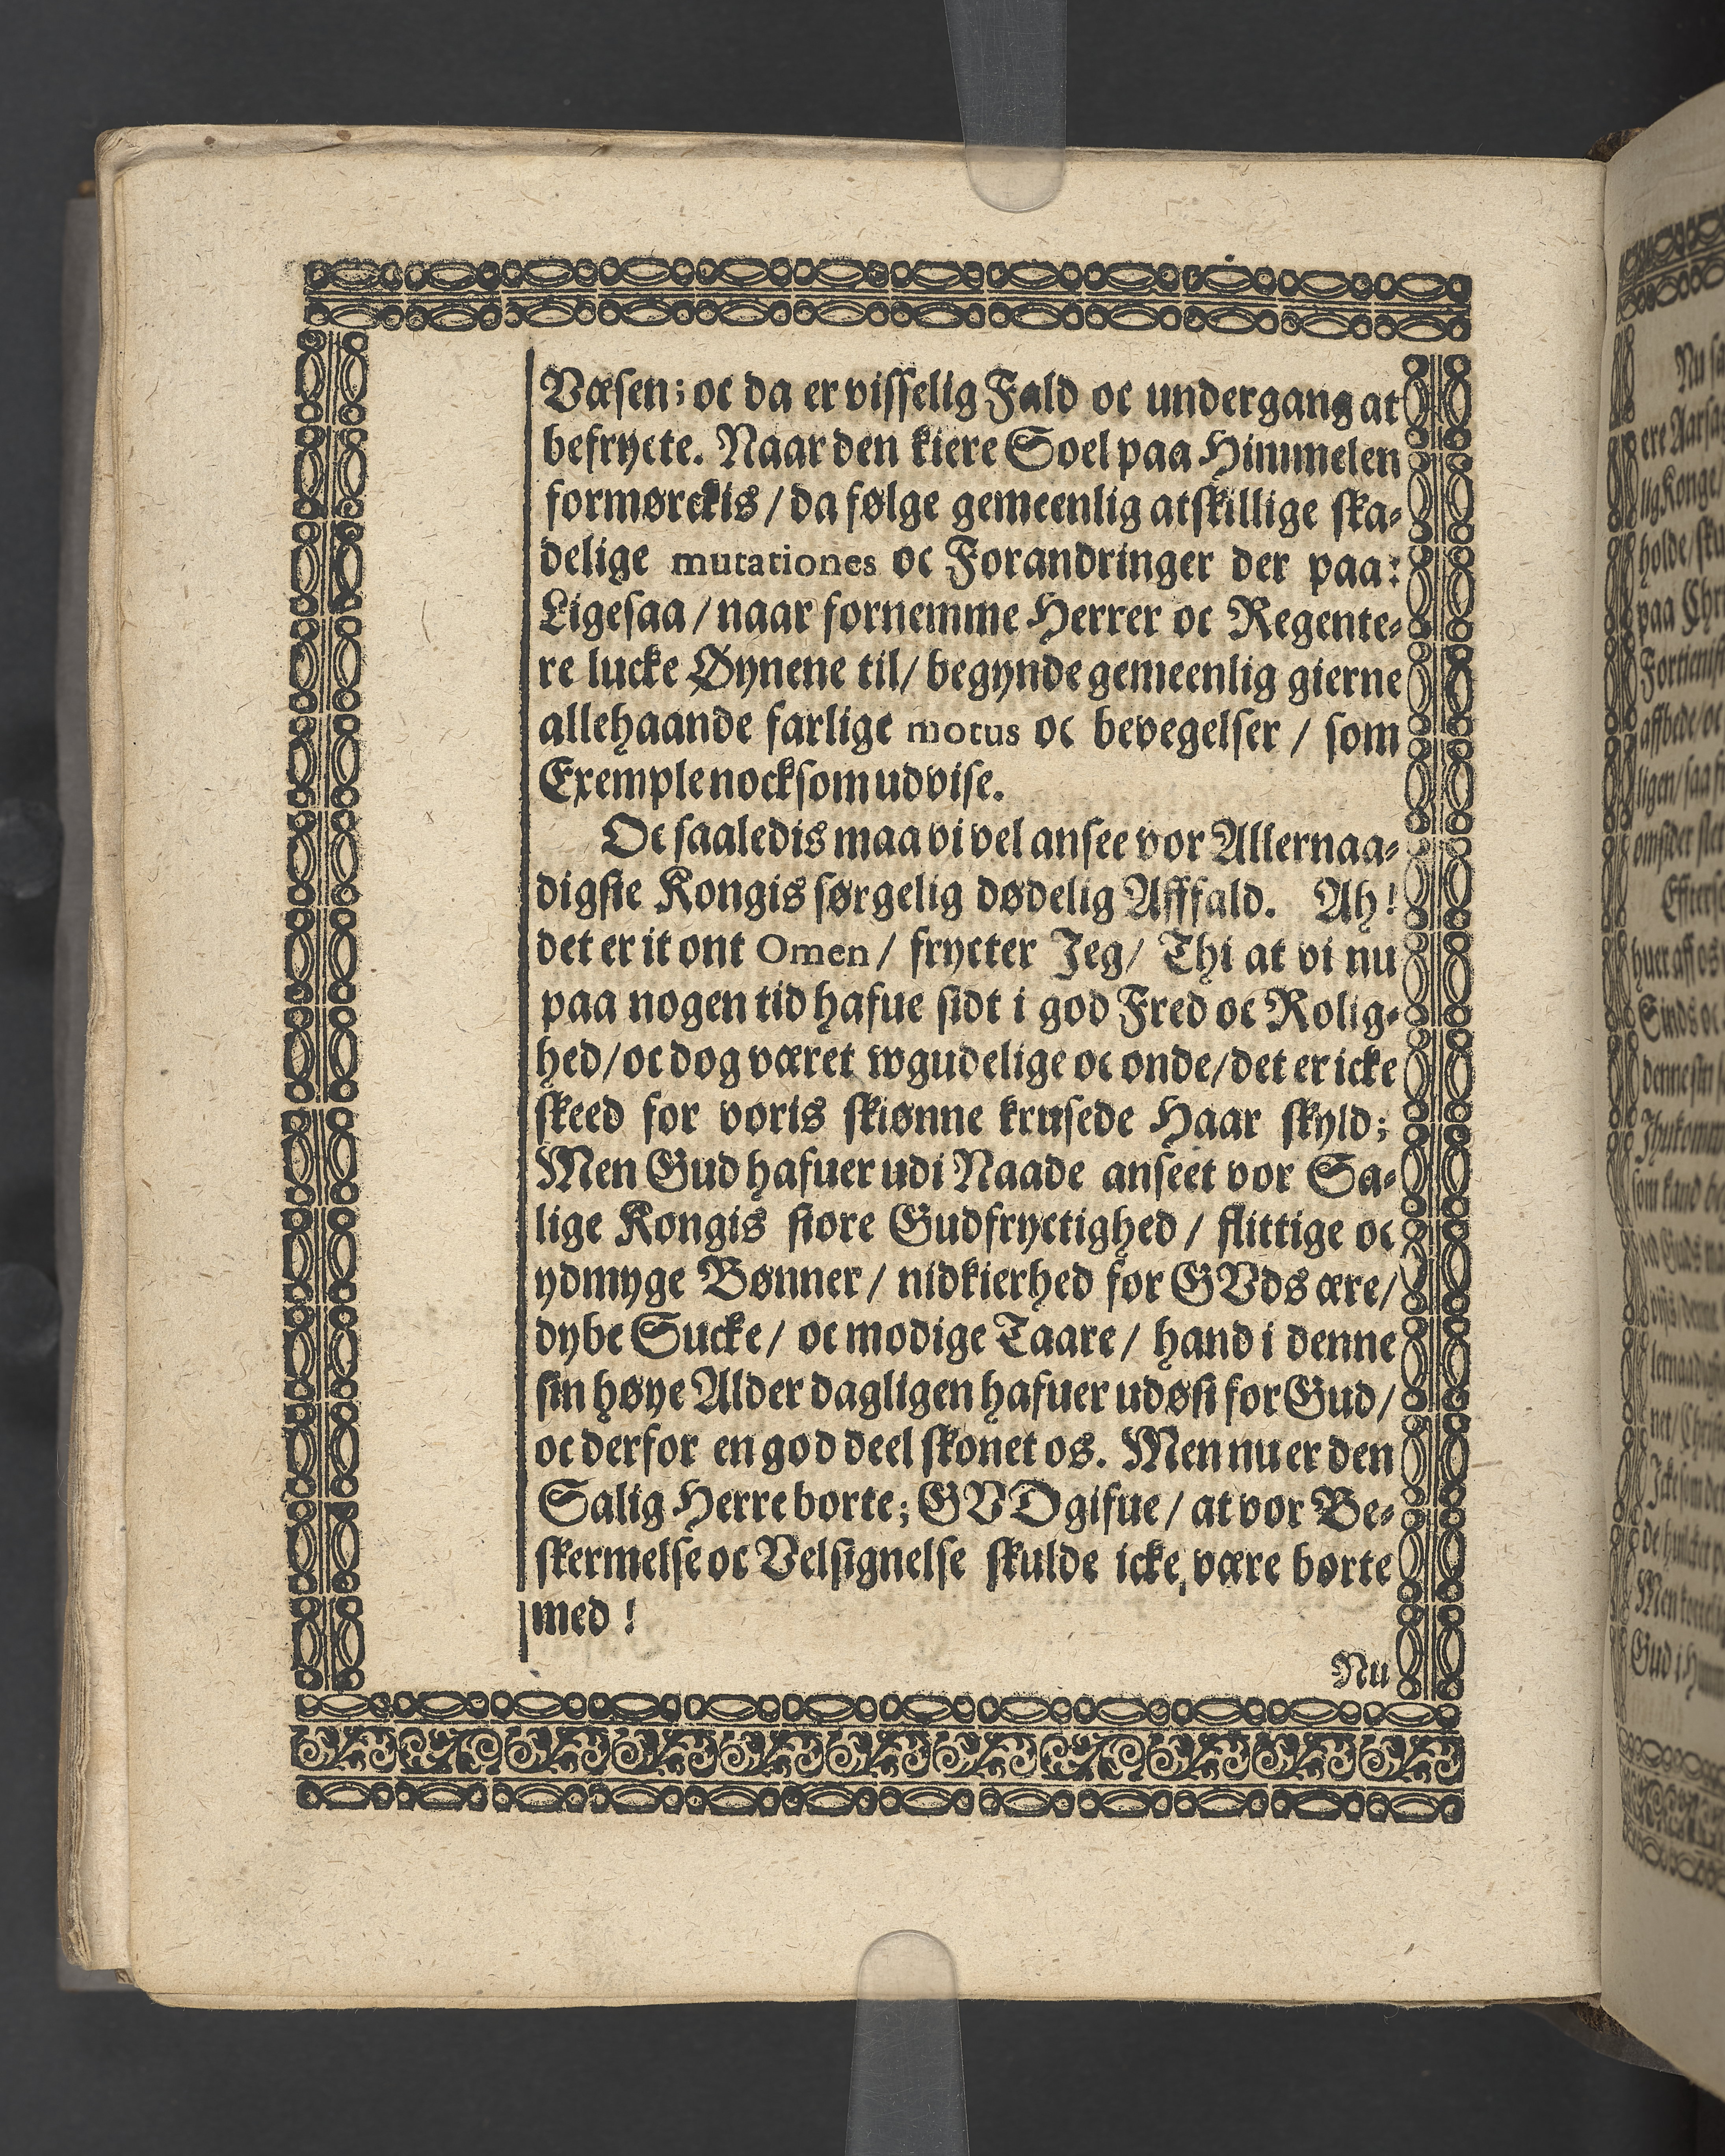 Væsen; oc da er visselig Fald oc undergang at
befrycte. Naar den kiere Soel paa Himmelen
formørckis / da følge gemeenlig atskillige ska-
delige mutationes oc Forandringer der paa:
Ligesaa / naar fornemme Herrer oc Regente-
re lucke Øynene til / begynde gemeenlig gierne
allehaande farlige motus oc bevegelser / som
Exemple nocksom udvise.
Oc saaledis maa vi vel ansee vor Allernaa-
digste Kongis sørgelig dødelig Affald. Ah!
det er it ont Omen / frycter Jeg / Thi at vi nu
paa nogen tid hafue sidt i god Fred oc Rolig-
hed / oc dog været wgudelige oc onde / det er icke
skeed for voris skiønne krusede Haar skyld;
Men Gud hafuer udi Naade anseet vor Sa-
lige Kongis store Gudfryctighed / flittige oc
ydmyge Bønner / nidkierhed for GVds ære /
dybe Sucke / oc modige Taare / hand i denne
sin høye Alder dagligen hafuer udøst for Gud /
oc derfor en god deel skonet os. Men nu er den
Salig Herre borte; GVD gifue / at vor Be-
skermelse oc Velsignelse skulde icke, være borte
med !
Nu